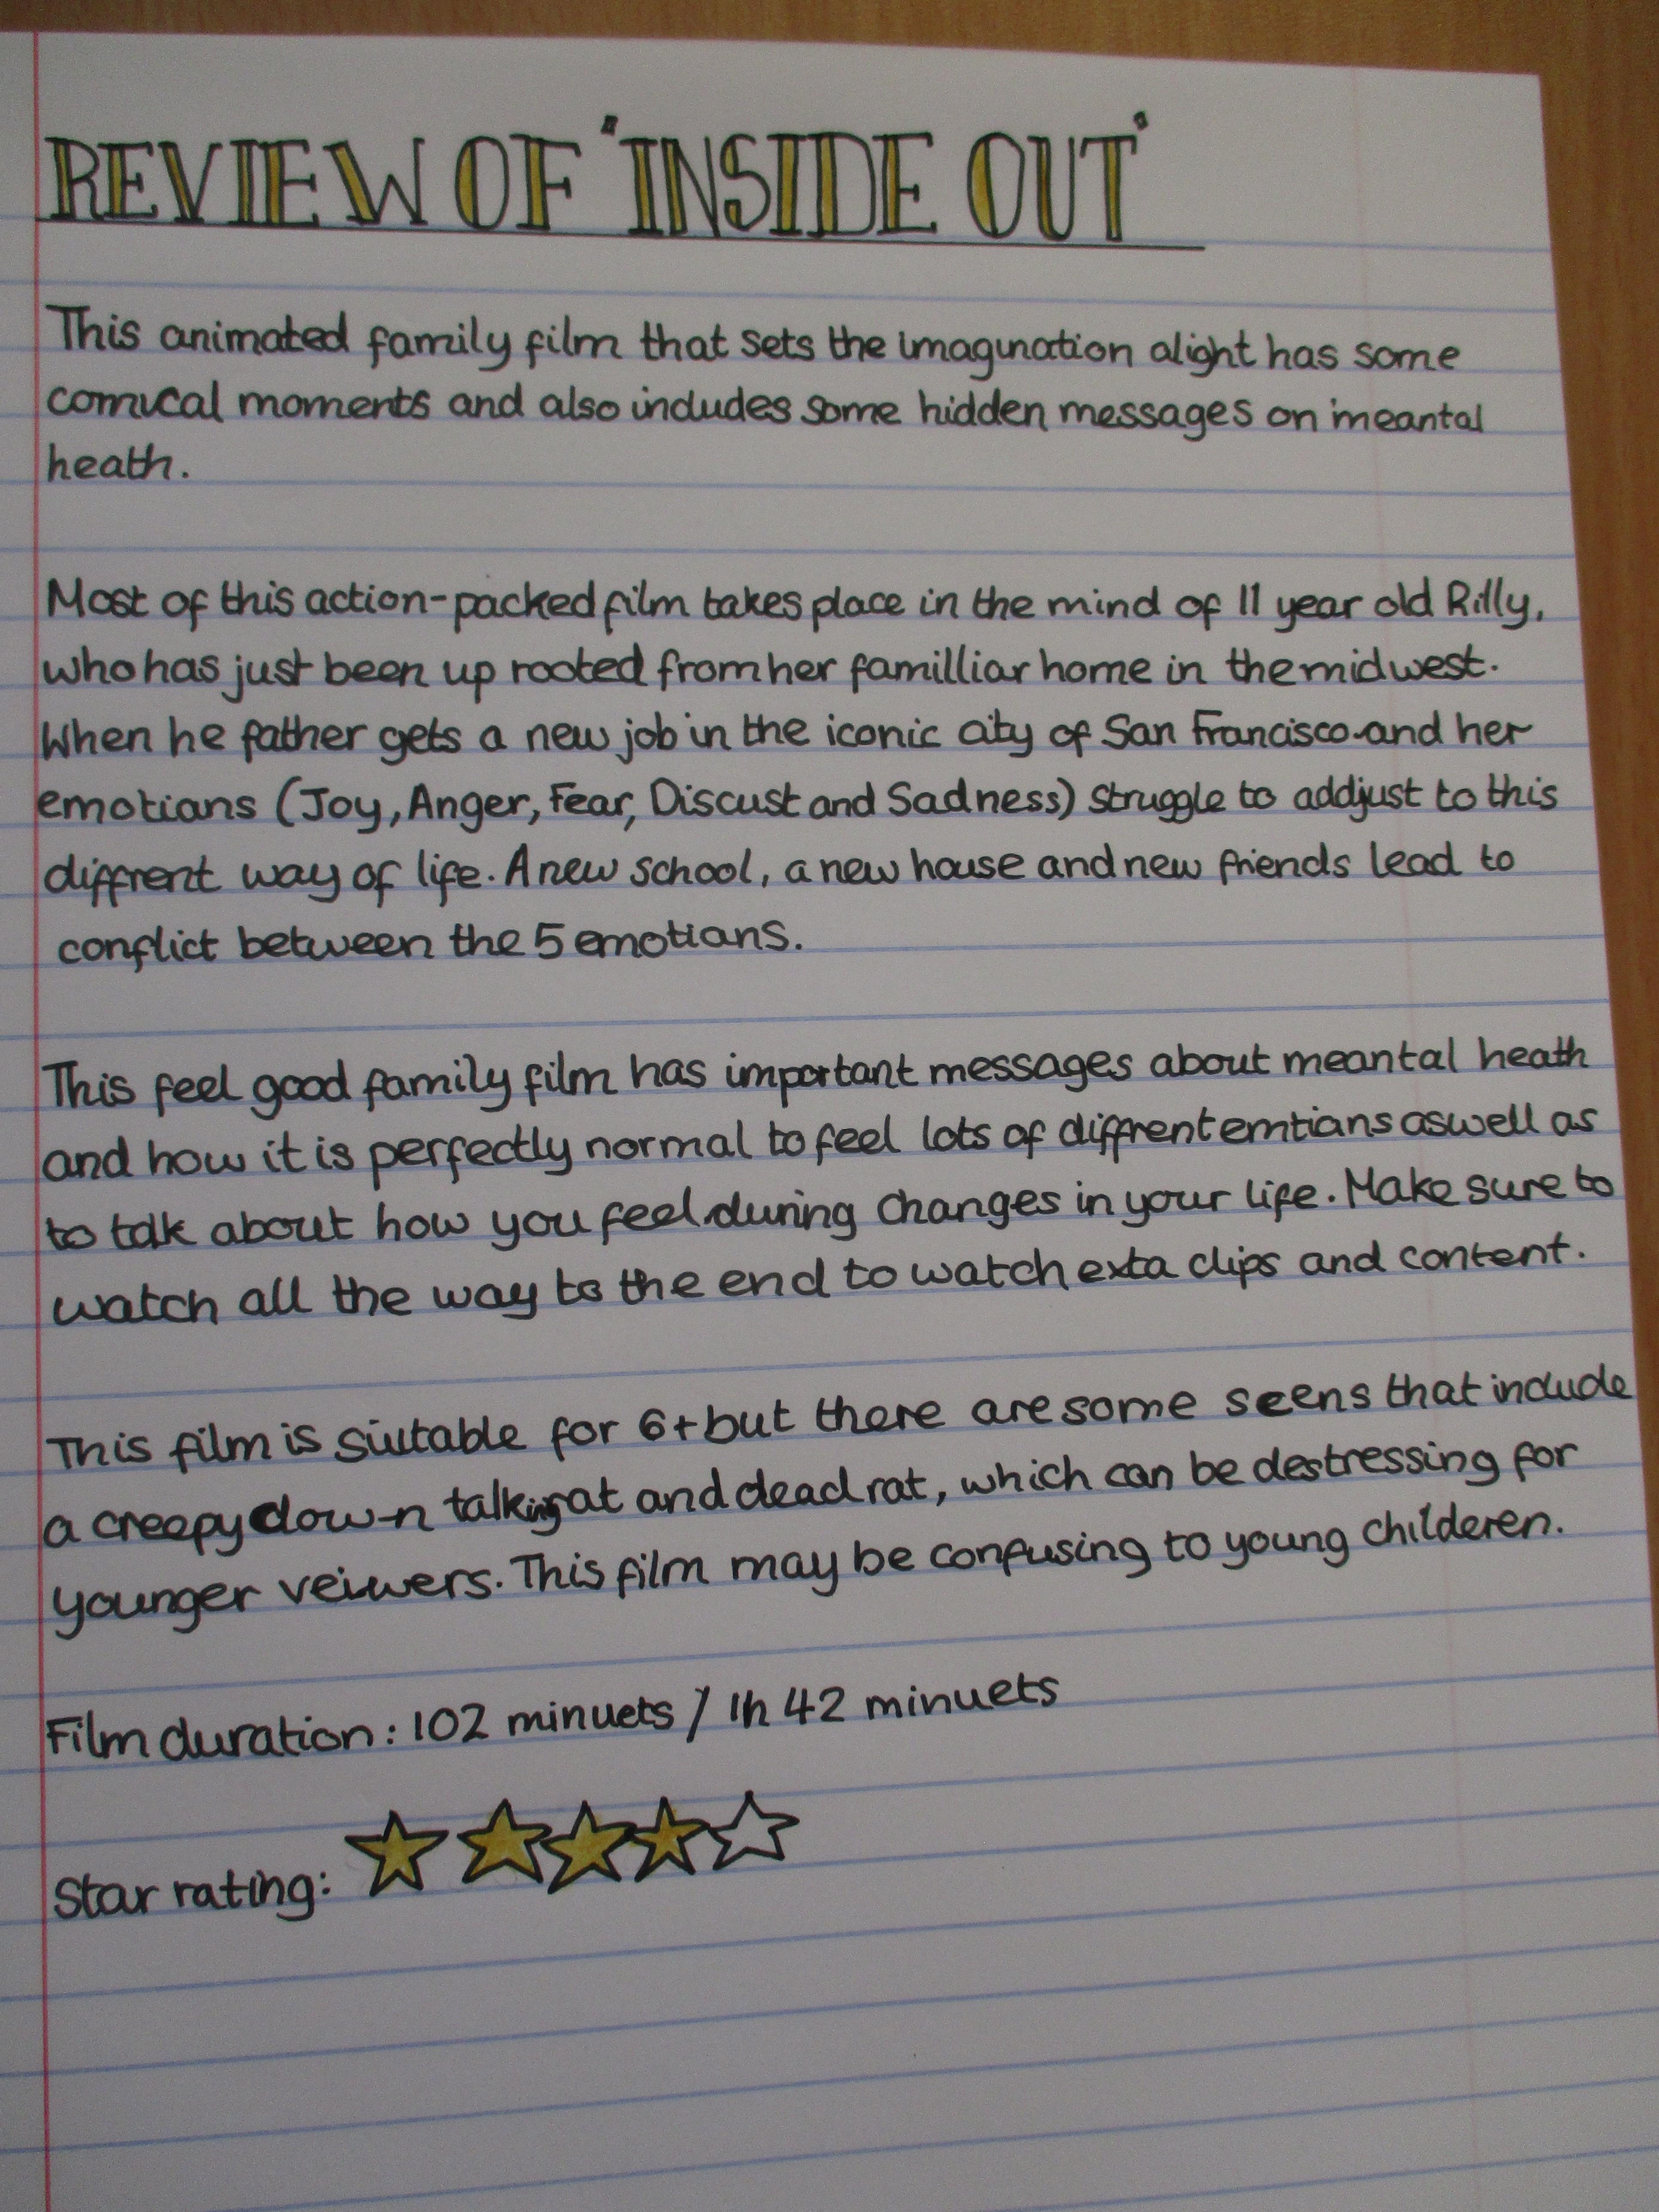 REVIEW OF 'INSIDE OUT'
This animated family film that sets the imagination alight has some
comical moments and also includes some hidden messages on meantal
heath.
Most of this action-packed film takes place in the mind of 11 year old Rilly,
who has just been up rooted from her familliar home in the midwest.
When he father gets a new job in the iconic city of San Francisco and her
emotians (Joy, Anger, Fear, Discust and Sadness) struggle to addjust to this
diffrent way of life. A new school, a new house and new friends lead to
conflict between the 5 emotians.
This feel good family film has important messages about meantal heath
and how it is perfectly normal to feel lots of diffrent emtians aswell as
to talk about how you feel during changes in your life. Make sure to
watch all the way to the end to watch exta clips and content.
This film is suitable for 6+ but there are some seens that include
a creepy clown talking rat and dead rat, which can be destressing for
younger veiwers. This film may be confusing to young childeren.
Film duration: 102 minuets / 1h 42 minuets
Star rating: